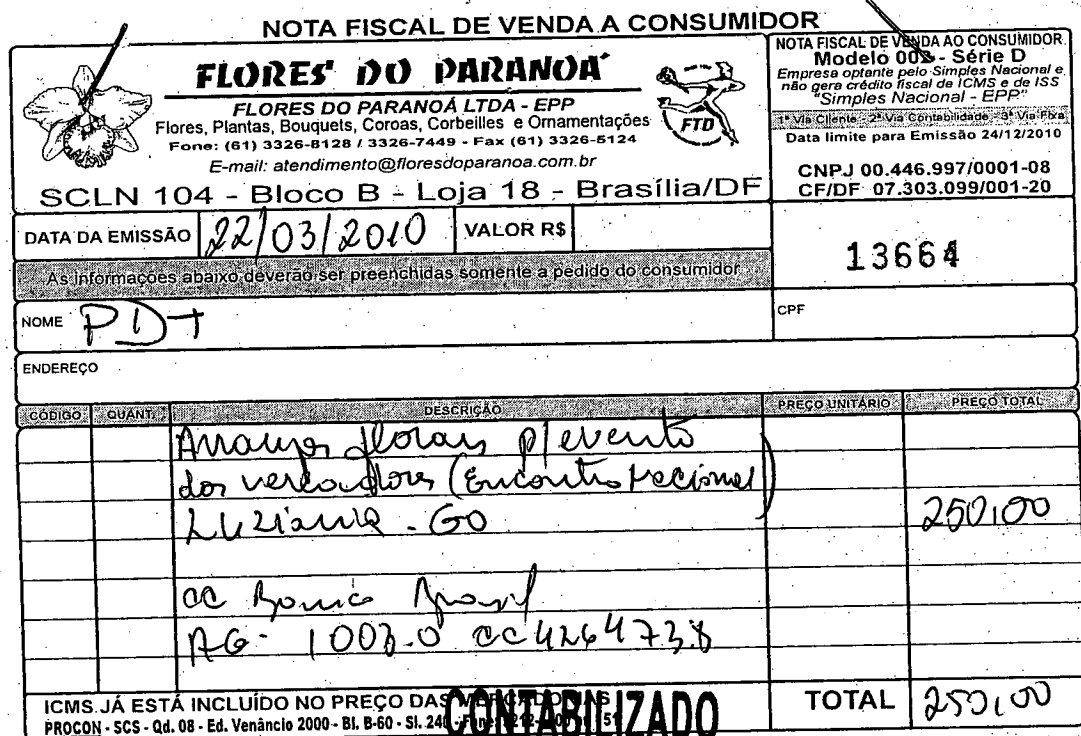 NOTA FISCAL DE VENDA A CONSUMIDOR
FLORES DO PARANOÁ
FLORES DO PARANOÁ LTDA - EPP
Flores, Plantas, Bouquets, Coroas, Corbeilles e Ornamentações
Fone: (61) 3326-8128 / 3326-7449 - Fax (61) 3326-5124
E-mail: atendimento@floresdoparanoa.com.br
SCLN 104 - Bloco B - Loja 18 - Brasília/DF
FTD
NOTA FISCAL DE VENDA AO CONSUMIDOR
Modelo 002 - Série D
Empresa optante pelo Simples Nacional e
não gera crédito fiscal de ICMS e de ISS
"Simples Nacional - EPP"
1ª Via Cliente - 2ª Via Contabilidade - 3ª Via Fixa
Data limite para Emissão 24/12/2010
CNPJ 00.446.997/0001-08
CF/DF 07.303.099/001-20
DATA DA EMISSÃO 22/03/2010 VALOR R$
13664
As informações abaixo deverão ser preenchidas somente a pedido do consumidor
NOME PDT CPF
ENDEREÇO
CÓDIGO QUANT. DESCRIÇÃO PREÇO UNITÁRIO PREÇO TOTAL
Arranjos florais p/ evento
dos vereadores (Encontro Nacional)
Luziania - GO 250,00
cc Banco Brasil
AG- 1003-0 cc 426473-8
ICMS JÁ ESTÁ INCLUÍDO NO PREÇO DAS TOTAL 250,00
PROCON - SCS - Qd. 08 - Ed. Venâncio 2000 - Bl. B-60 - Sl. 240
CONTABILIZADO